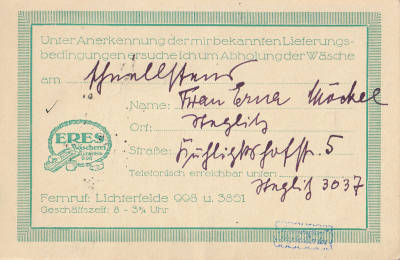 Unter Anerkennung der mir bekannten Lieferungs-
bedingungen ersuche ich um Abholung der Wäsche
am schnellstens
Name: Frau Erna Möckel
Ort: Steglitz
Straße: 5
Telefonisch erreichbar unter:
Steglitz 3037
ERES
Wäscherei
Fernruf: Lichterfelde 998 u. 3851
Geschäftszeit: 8 - 3¾ Uhr